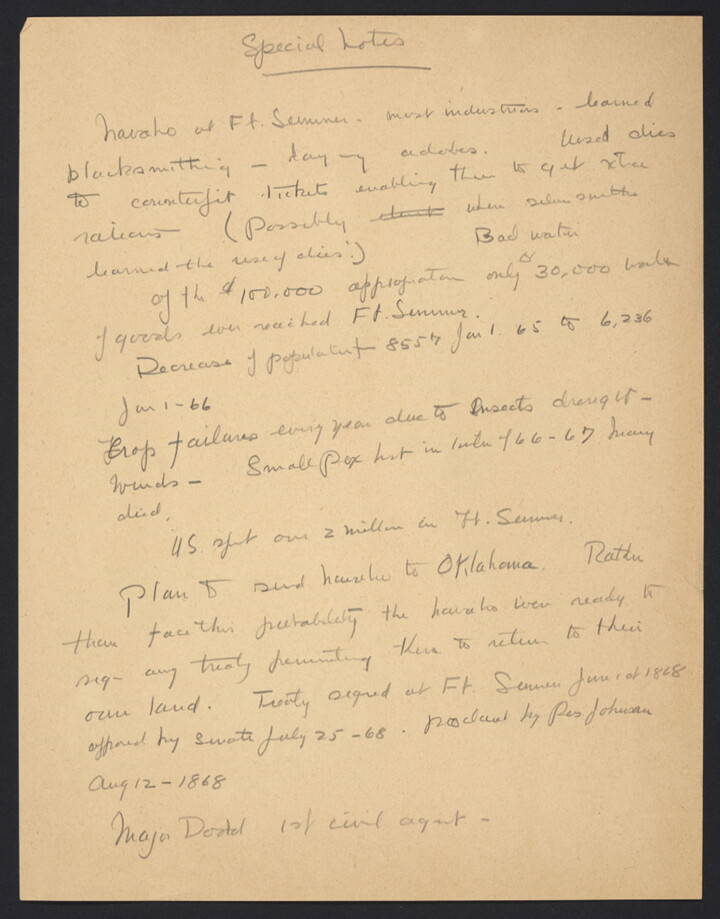 Special Notes
Navaho at Ft. Sumner - most industrious - learned
blacksmithing - adobes. Used dies
to counterfit tickets enabling them to get xtra
rations (Possibly when silversmiths
learned the use of dies!) Bad water
Of the $100,000 appropriation only 30,000 worth
of goods ever reached Ft. Sumner.
Decrease of population 8557 Jan 1. 65 to 6,236
Jan 1-66
Crop failures every year due to Insects drought -
Winds - Small Pox hit in winter of 66-67 many
died.
U.S. spent over 2 million on Ft. Sumner.
Plan to send navaho to Oklahoma. Rather
than face this probability the navaho were ready to
sign any treaty permitting them to return to their
own land. Treaty signed at Ft. Sumner June 1st 1868
approved by senate July 25-68. proclaimed by Pres Johnson
Aug 12-1868
Major Dodd 1st civil agent -